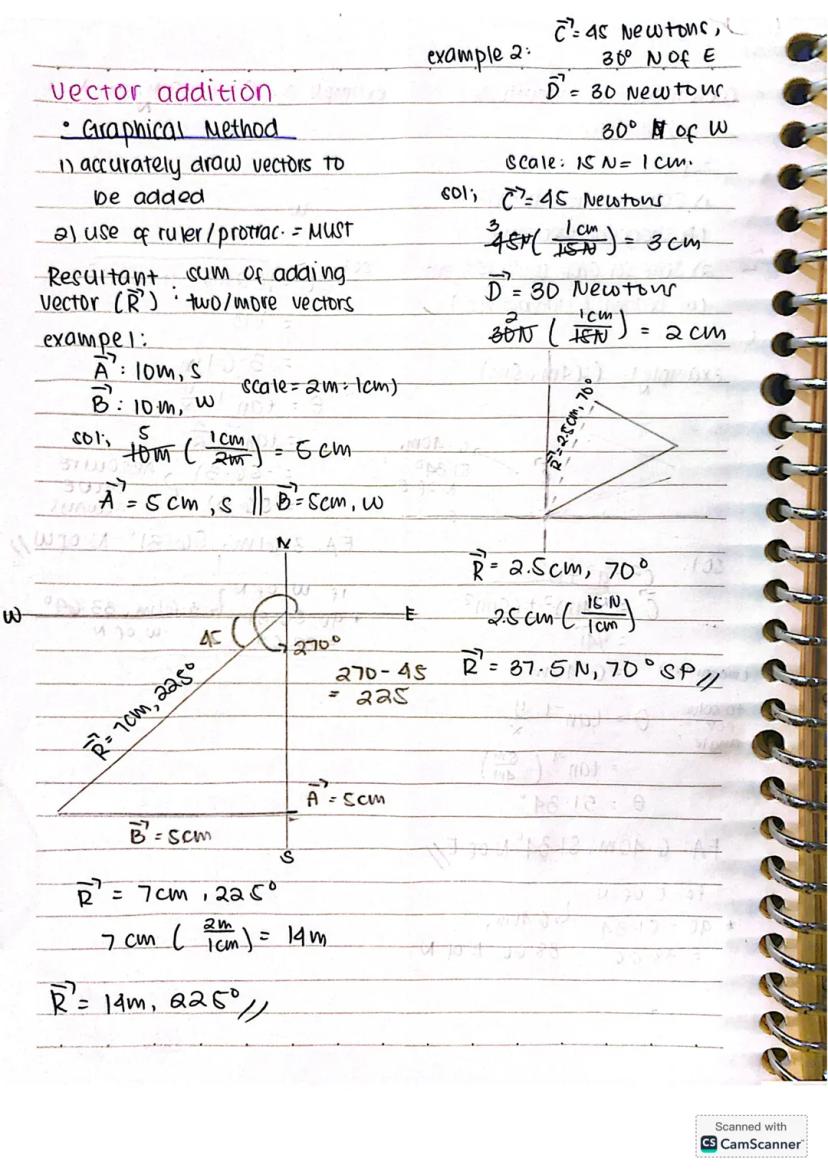 Vector addition
• Graphical Method
1) accurately draw vectors to
be added
2) use of ruler/protrac. = MUST
Resultant : sum of adding
vector (R⃗) : two/more vectors
exampe 1:
A⃗ : 10m, S
B⃗ : 10m, W
scale = 2m : 1cm)
sol; 10m 5 (1cm/2m) = 5 cm
A⃗ = 5cm, S || B⃗ = 5cm, W
N
W
E
45
270°
270 - 45
= 225
R⃗ = 7cm, 225°
A⃗ = 5cm
B⃗ = 5cm
S
R⃗ = 7cm, 225°
7 cm (2m/1cm) = 14m
R⃗ = 14m, 225° //
example 2:
C⃗ = 45 Newtons,
30° N of E
D⃗ = 30 Newtons
30° N of W
scale: 15 N = 1 cm.
sol; C⃗ = 45 Newtons
45N 3 (1cm/15N) = 3 cm
D⃗ = 30 Newtons
30N 2 (1cm/15N) = 2 cm
R⃗ = 2.5cm, 70°
R⃗ = 2.5cm, 70°
2.5cm (15 N/1cm)
R⃗ = 37.5N, 70° SP //
Scanned with
CS CamScanner